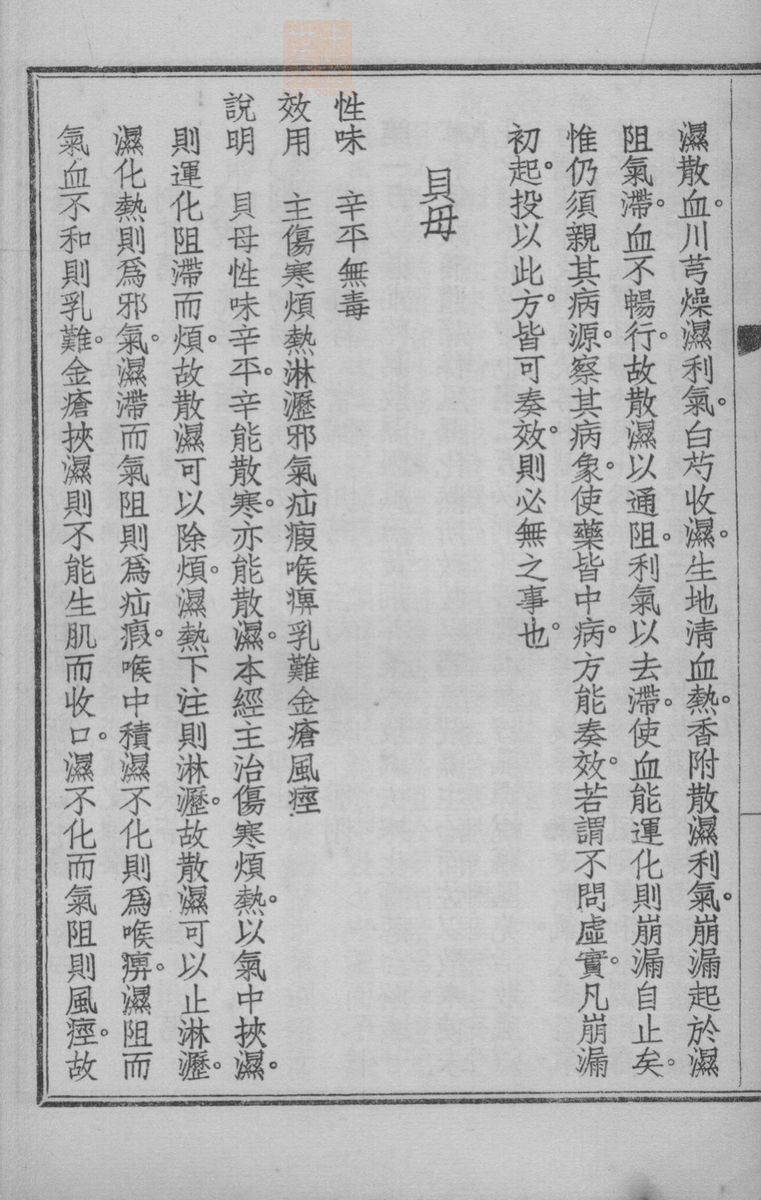 濕散血。川芎燥濕利氣。白芍收濕。生地淸血熱。香附散濕利氣。崩漏起於濕
阻氣滯。血不暢行。故散濕以通阻。利氣以去滯。使血能運化則崩漏自止矣。
惟仍須親其病源。察其病象。使藥皆中病。方能奏效。若謂不問虛實。凡崩漏
初起。投以此方。皆可奏效。則必無之事也。
貝母
性味　辛平無毒
效用　主傷寒煩熱淋瀝邪氣疝瘕喉痹乳難金瘡風痙
說明　貝母性味辛平。辛能散寒。亦能散濕。本經主治傷寒煩熱。以氣中挾濕。
則運化阻滯而煩。故散濕可以除煩。濕熱下注則淋瀝。故散濕可以止淋瀝。
濕化熱則爲邪氣。濕滯而氣阻則爲疝瘕。喉中積濕不化則爲喉痹。濕阻而
氣血不和則乳難。金瘡挾濕則不能生肌而收口。濕不化而氣阻則風痙。故